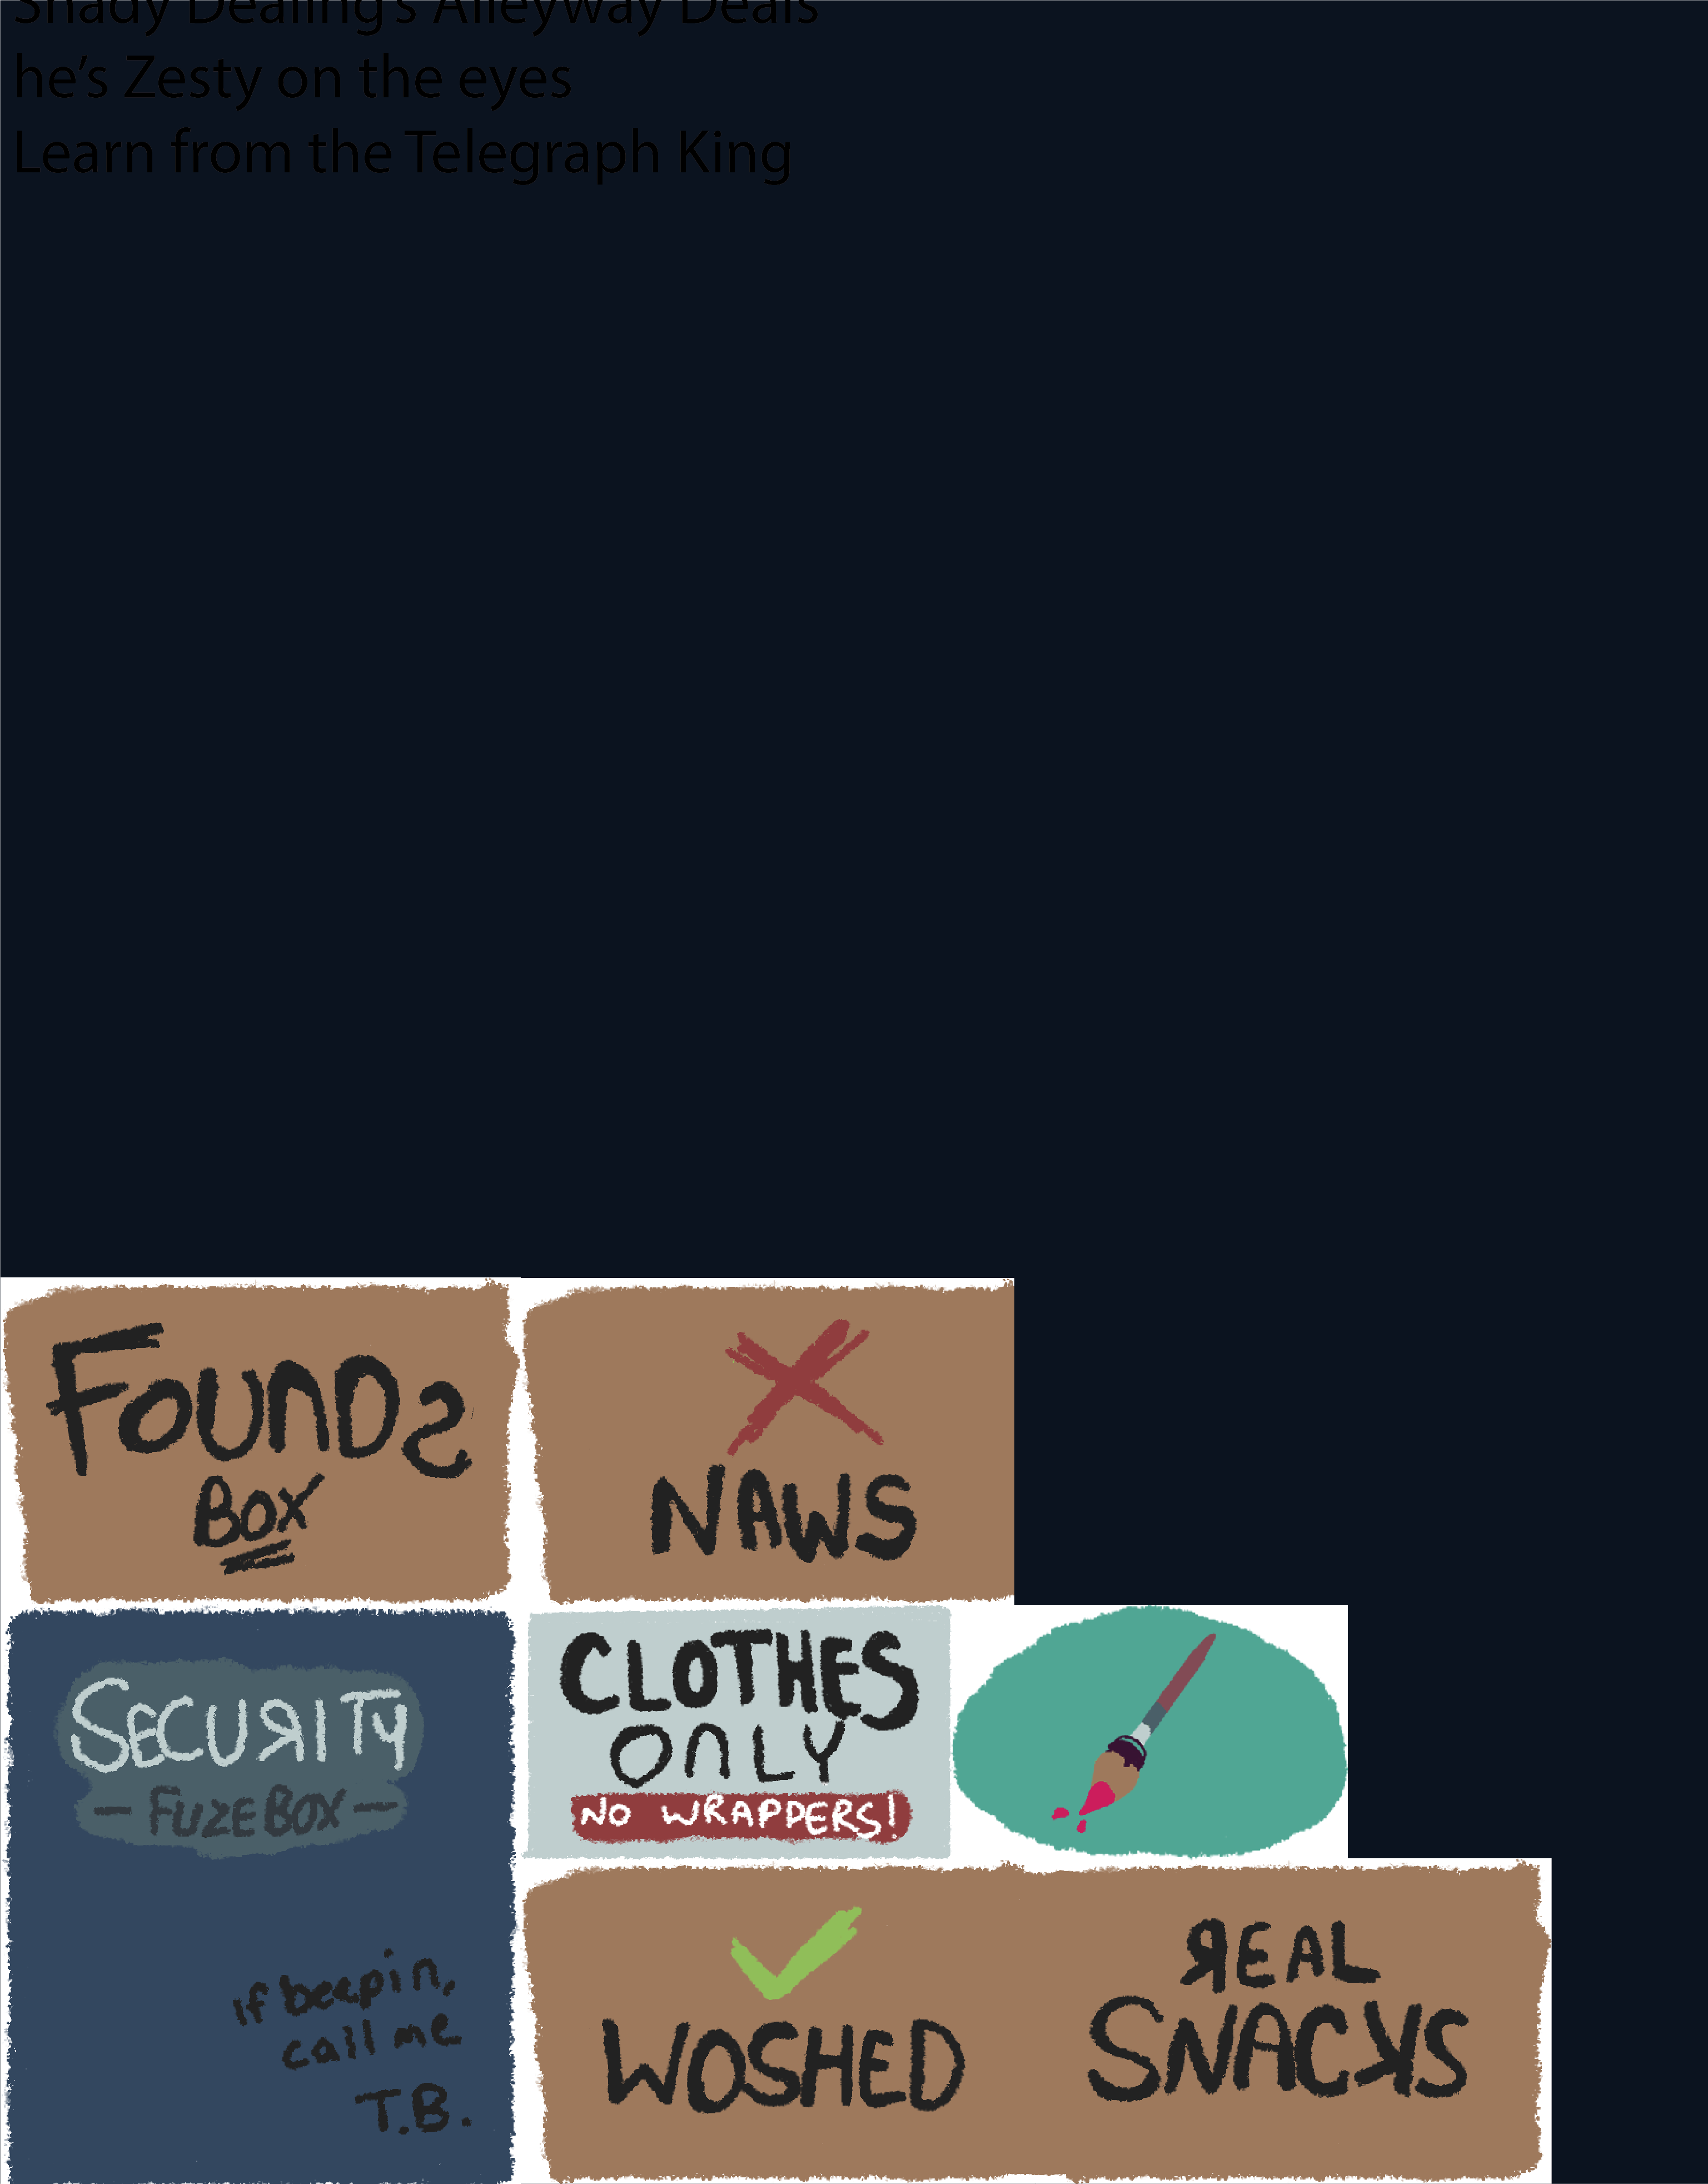 Shady Dealing's Alleyway Deals
he's Zesty on the eyes
Learn from the Telegraph King
FOUNDS
BOX
NAWS
SECURITY
- FUZEBOX -
If beepin,
call me
T.B.
CLOTHES
ONLY
NO WRAPPERS!
WOSHED
REAL
SNACKS